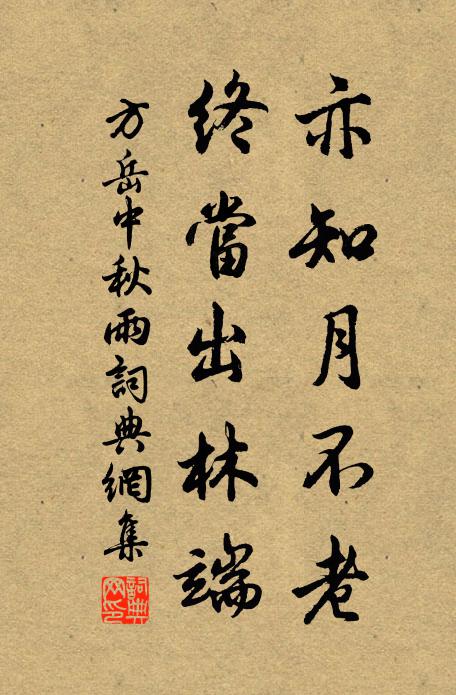 亦知月不老
終當出林端
方岳中秋雨詞典網集
詞典網印